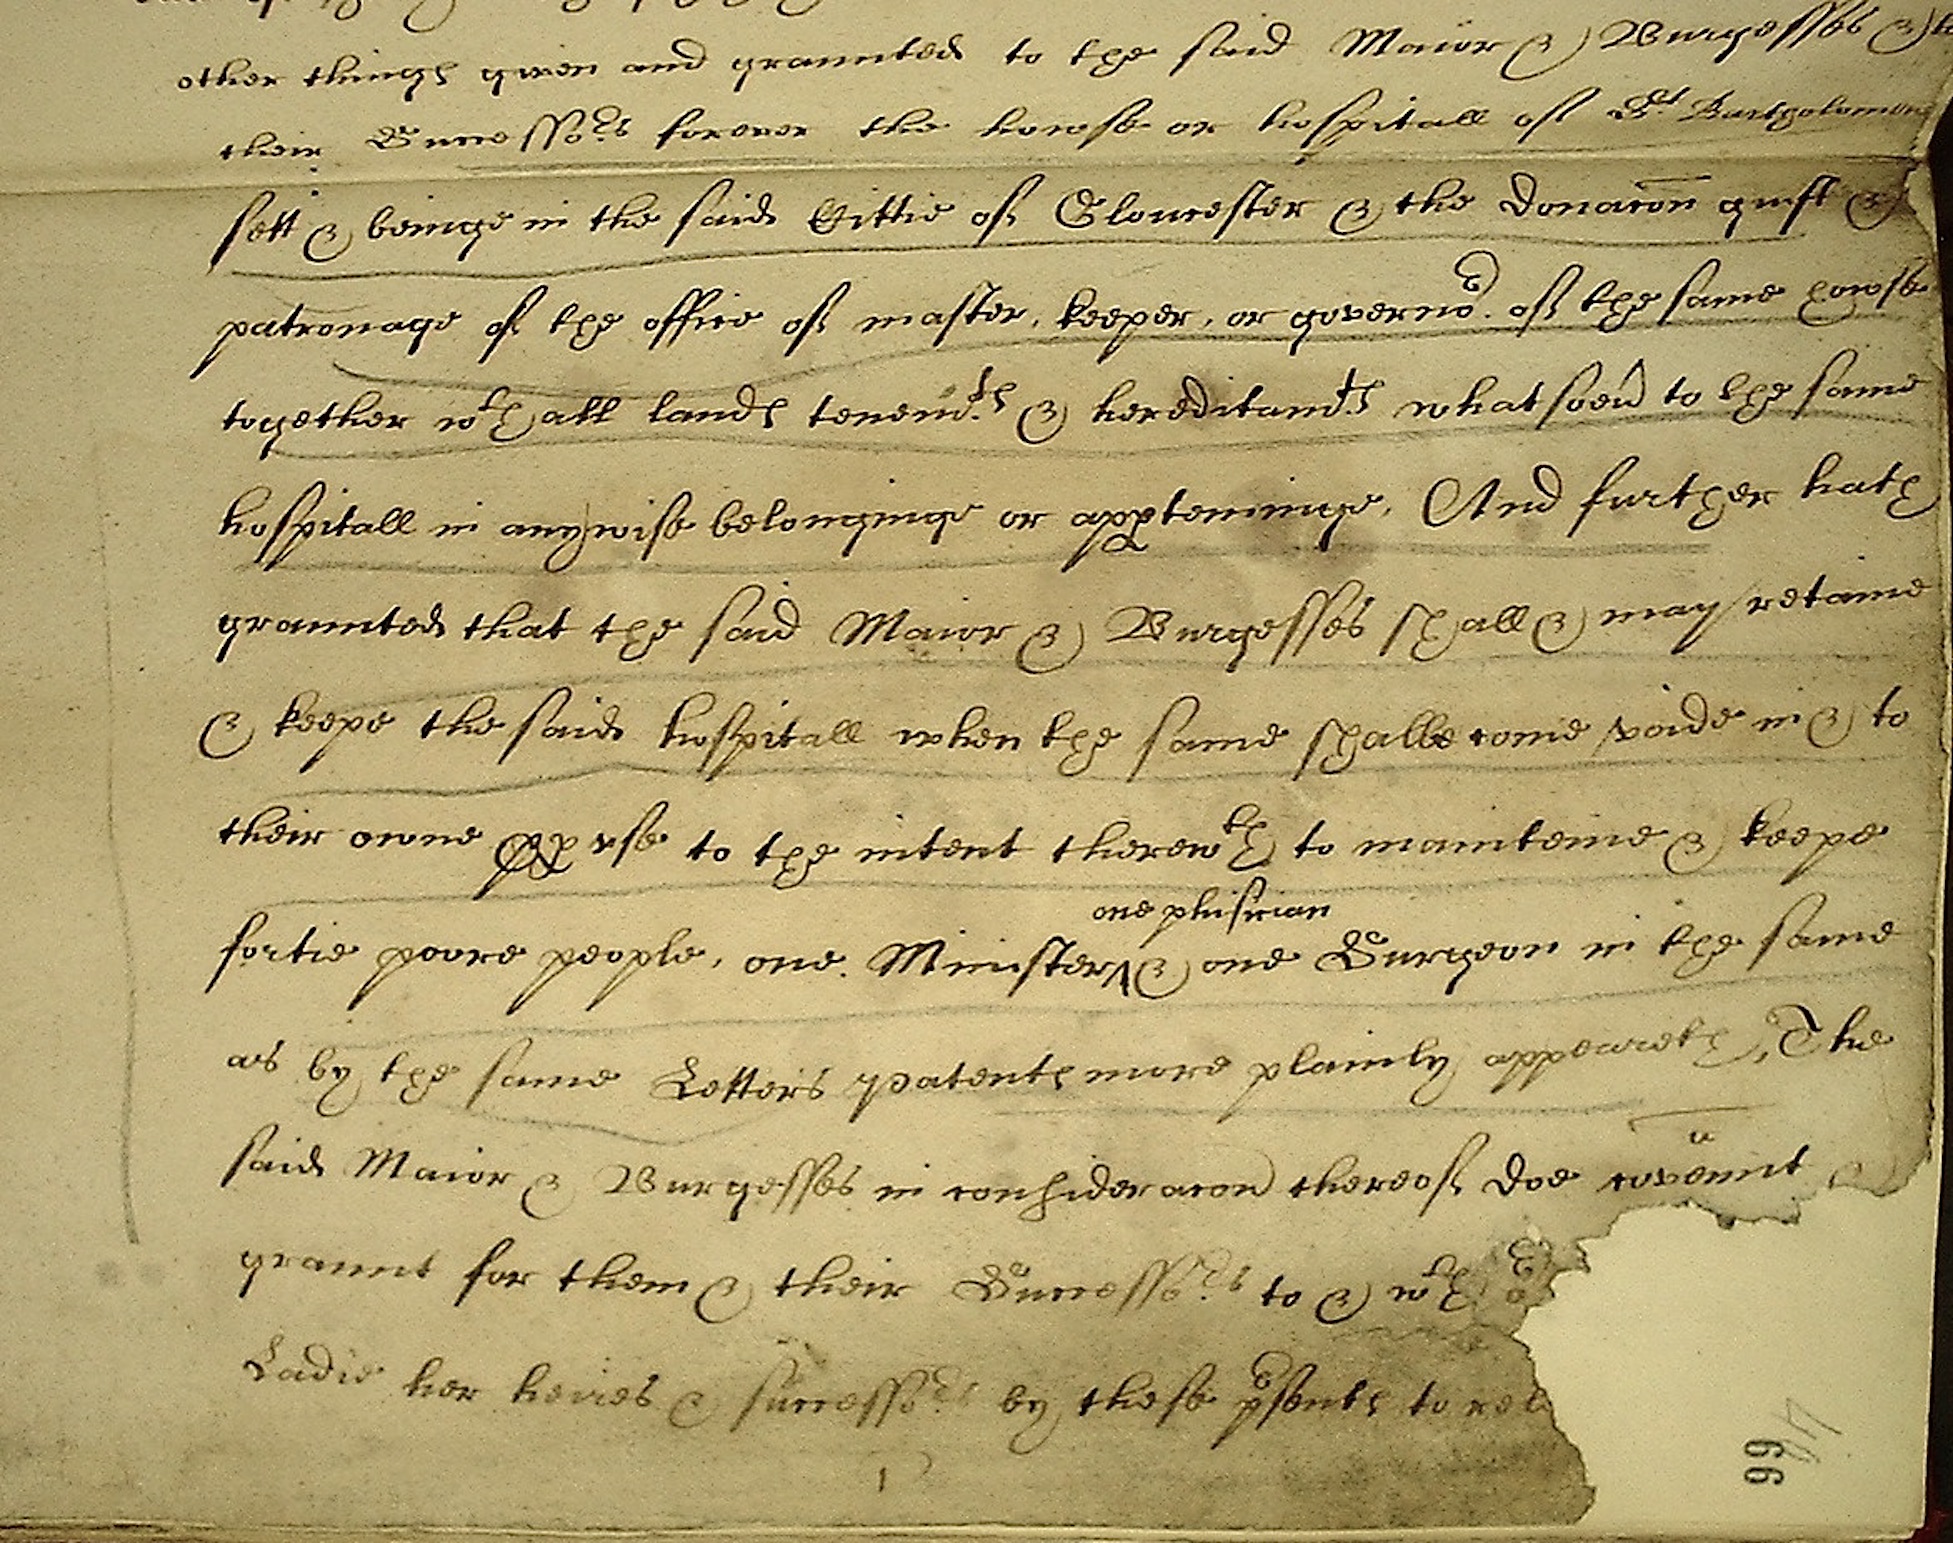 other things given and graunted to the said Maior & Burgesses & to
their Successors forever the howse or hospitall of St. Bartholomewe
sett & beinge in the said Cittie of Gloucester & the donacon guift &
patronage of the office of master, keeper, or governor. of the same howse
together wth all lands tenemts. & hereditamts whatsoeu to the same
hospitall in anywise belonginge or appteininge. And further hath
graunted that the said Maior & Burgesses shall & may retaine
& keepe the said hospitall when the same shalbe come voide in & to
their owne vse to the intent therewth to mainteine & keepe
one phisician
fortie poore people, one Minister ^ & one Surgeon in the same
as by the same Letters Patents more plainly appeareth, The
said Maior & Burgesses in consideracon thereof doe covennt &
graunt for them & their Successors to & wth
Ladie her heires & successors by these psents to
99